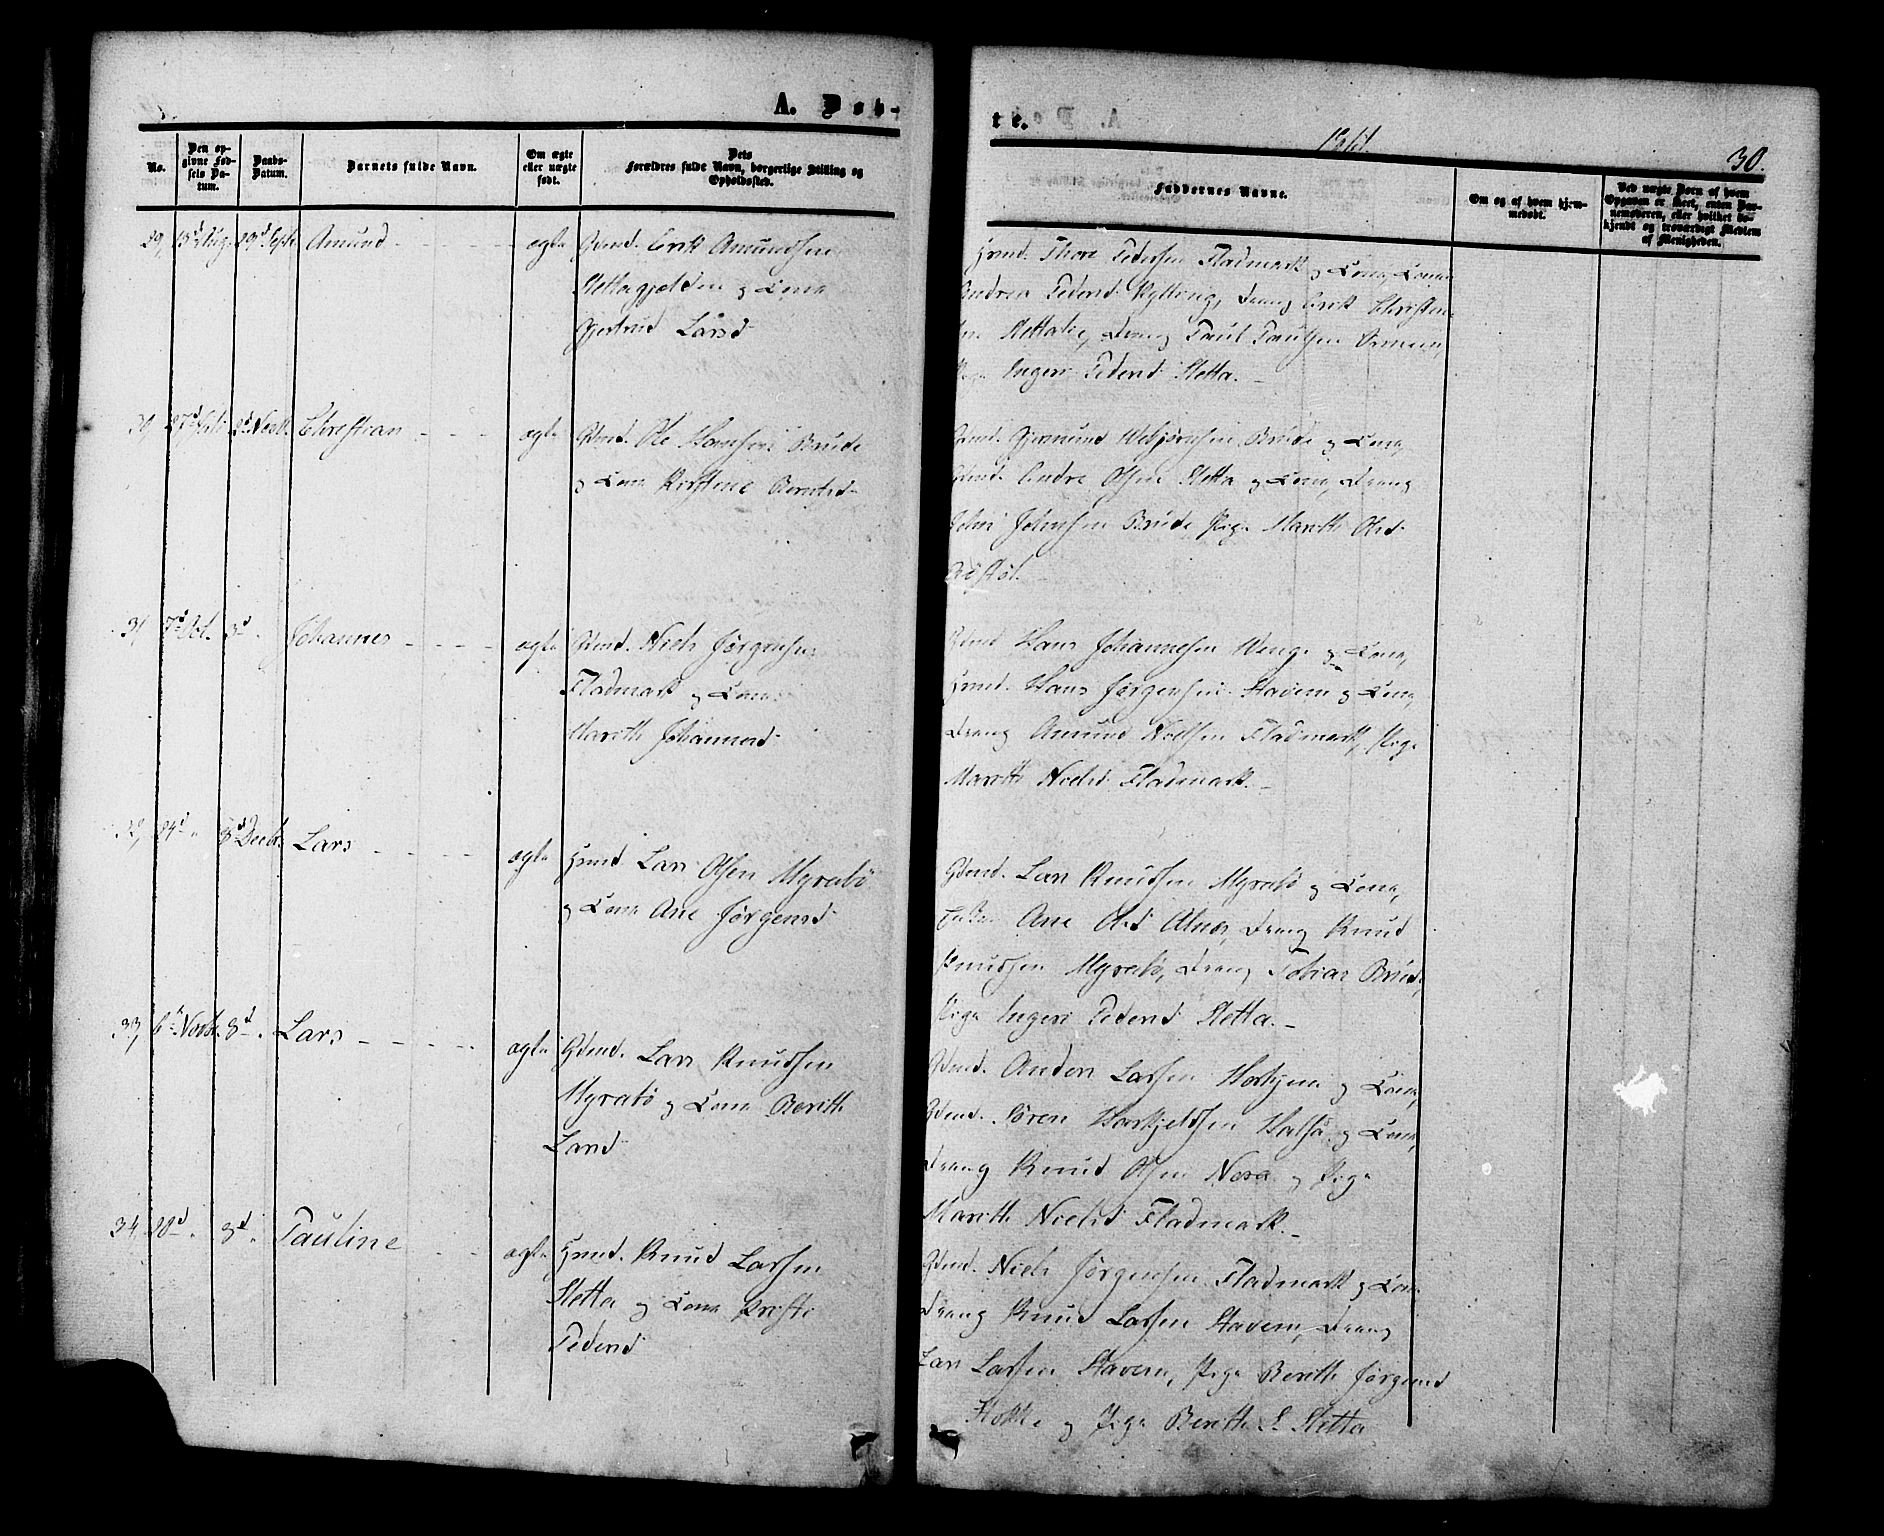 A. Døb-
te.
1861.
30.
No.
Den op-
givne Fød-
sels Da-
tum.
Daabs-
Datum.
Barnets fulde Navn.
Om ægte
eller uægte
født.
Dets
Forældres fulde Navn, borgerlige Stilling og
Opholdssted.
Faddernes Navne.
Om og af hvem hjem-
medøbt.
Ved uægte Børn af hvem
Opgaven er skeet, enten Bar-
nemoderen, eller hvilket be-
kjendt og troværdigt Medlem
af Menigheden.
29, Amund - - - - ægte Gdmd. Erik Amundsen
Slettagjelden og Kona
Gjertrud Larsd.
Hmd. Thore Pedersen Fladmark og Kona, Kona
Pedersd. Kylling, Dreng Erik Christen-
sen Slettalie, Dreng Paul Paulsen
Pige Ingeri Pedersd. Sletta. -
30, 27d Septr. 3d Novbr. Christian - - - - ægte Gdmd. Ole Hansen Brude
og Kona Kirstine Berntsd.
Gdmd. Gjermund Brude og Kona,
Gdmd. Endre Olsen Sletta og Kona, Dreng
John Johnsen Brude, Pige Marith Olsd.
31, 7d Oct. 3d " Johannes - - - - ægte Gdmd. Niels Jørgensen
Fladmark og Kona
Marith Johannesd.
Gdmd. Hans Johannesen Wenge og Kona,
Hmd. Hans Jørgensen Stavem og Kona,
Dreng Amund Nielsen Fladmark, Pige
Marith Nielsd. Fladmark. -
32, 24d " 8d Decbr. Lars - - - - ægte Hmd. Lars Olsen Myrabö
og Kona Ane Jørgensd.
Gdmd. Lars Knudsen Myrabö og Kona,
Ane Olsd. Alnes, Dreng Knud
Knudsen Myrabö, Dreng Tobias Brude,
Pige Ingeri Pedersd. Sletta. -
33, 6d Novbr. 8d " Lars - - - - ægte Gdmd. Lars Knudsen
Myrabö og Kona Berith
Larsd.
Gdmd. Anders Larsen Horgjem og Kona,
Gdmd. Sören Halsa og Kona,
Dreng Knud Olsen Nora og Pige
Marith Nielsd. Fladmark. -
34, 20d " 8d " Pauline - - ægte Hmd. Knud Larsen
Sletta og Kona Kristi
Pedersd.
Gdmd. Niels Jørgensen Fladmark og Kona
Dreng Knud Larsen Stavem, Dreng
Lars Larsen Stavem, Pige Berith Jørgensd.
Stokke og Pige Berith L. Sletta